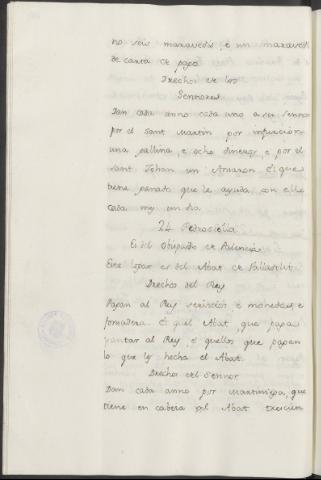 no seis maravedis, e un maravedi
de carta de pago
Drechos de los
Sennores
Dan cada anno cada uno a su Sennor
por el Sant Martin por infurcion
una gallina, e ocho dineros, e por el
Sant Johan un El que
tiene ganado que le ayuda con ello
cada mes un dia
24 Pedrosiella
Es del Obispado de Palencia
Este logar es del Abat de
Drechos del Rey
Pagan al Rey servicios e monedas, e
fonsadera. El quel Abat, que paga
yantar al Rey, e quellos que pagan
lo que les hecha el Abat
Drechos del Sennor
Dan cada anno por Martiniega, que
tiene en cabeza del Abat